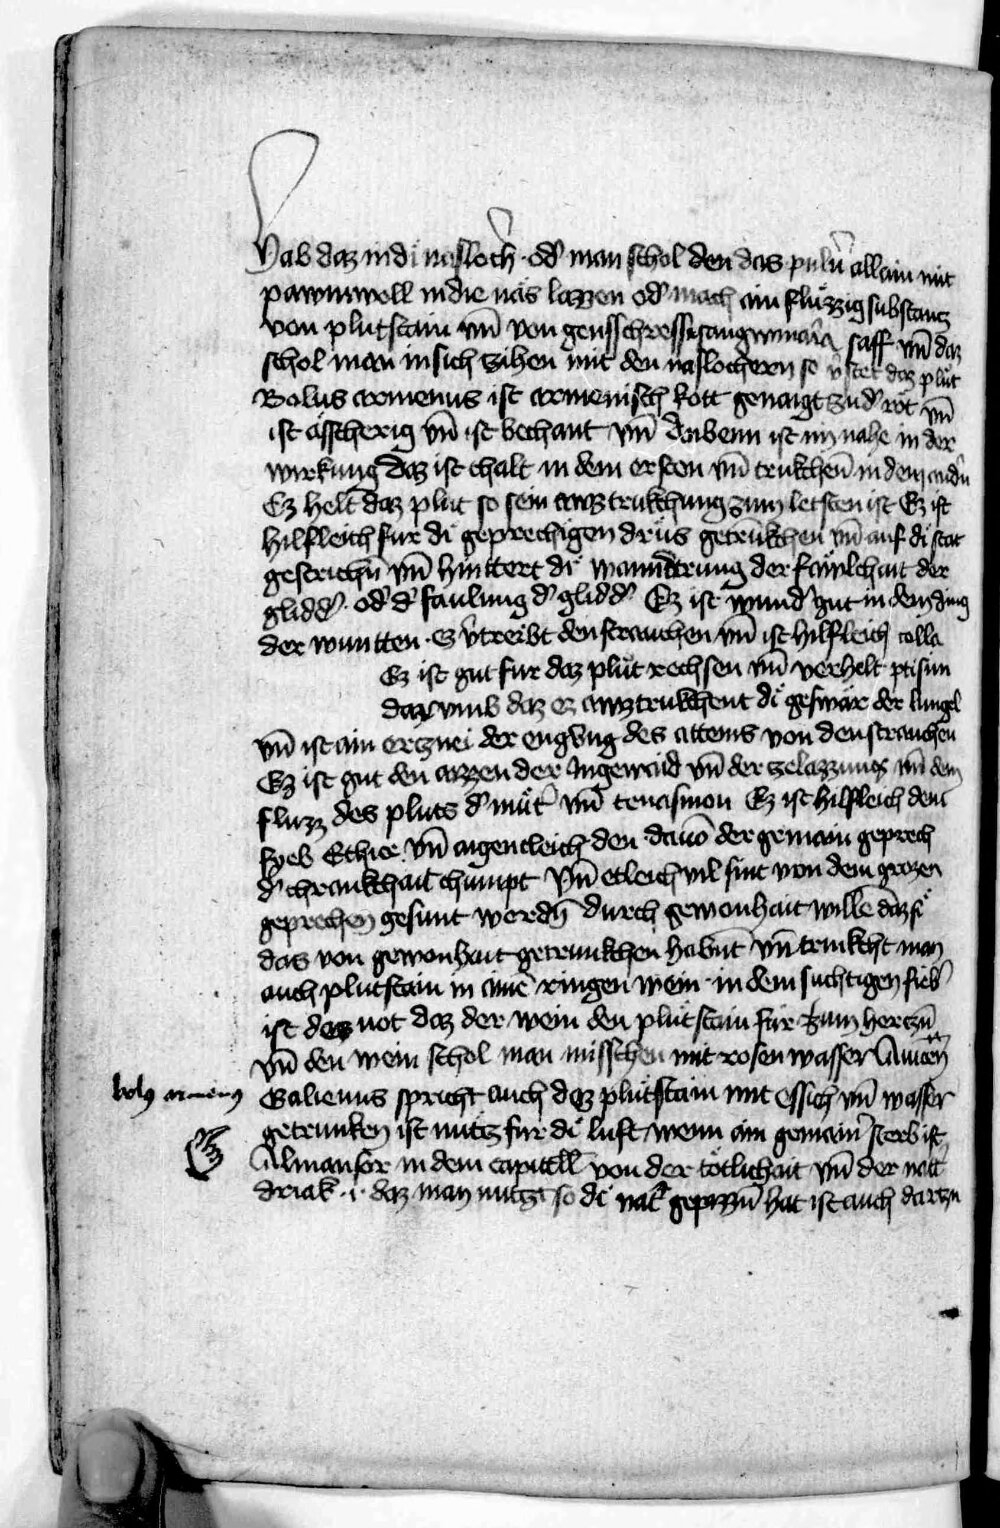 Hab daz in di nasloch · od man schol den das pulu allain mit
pawmwoll in die nas lazzen od mach ain fluzzig substanz
von plutstain vn von gensschressisangwinaria saff vn daz
schol man in sich zihen mit den naslochern so vstet daz plut
Bolus armenus ist armenisch kott genaigt zu d röt vn
ist ässcherig vn ist bechant vn im nahe in der
wirkung daz ist chalt in dem ersten vn trukchen in dem andn
Ez helt daz plut so sein awztrukchung zum letsten ist Ez ist
hilfleich fur di geprechigen drüs getrukchen vn auf di stat
gestrichn vn hintert di wanndrung der fawlchait der
glidd · od d faulung d glidd Ez ist wund gut in dem ding
der wuntten · Ez vtreibt den strauchen vn ist hilfleich colla
Ez ist gut fur daz plut rechsen vn verhelt ptisim
darvmb daz ez awztrukchent di geswär der lungel
vn ist ain ercznei der engvng des attems von den strauchen
Ez ist gut den azzen der Ingewaid vn der zelazzung vn dem
fluzz des pluts d müt vn tenasmon Ez ist hilfleich dem
fyeb Ethice vn aigencleich den · dauo der gemain geprech
d chrankchait chumpt Vn etleich vil sint von dem grozen
geprechen gesunt wordn durch gewonhait wille daz si
das von gewonhait getrunkchen habnt vn trinkcht man
auch plutstain in aime ringen wein · in dem suchtigen fieb
ist des not daz der wein den plutstain für zum herczn
vn den wein schol man misschen mit rosen wasser Auicen
bolus armenus Galienus spricht auch daz plutstain mit essich vn wasser
getrunken ist nutz fur di luft wenn ain gemain sterb ist
Almansor in dem capitell von der tötlichait vn der natt
driak · i · daz man nutzt so di nat gepizzn hat ist auch dartzu